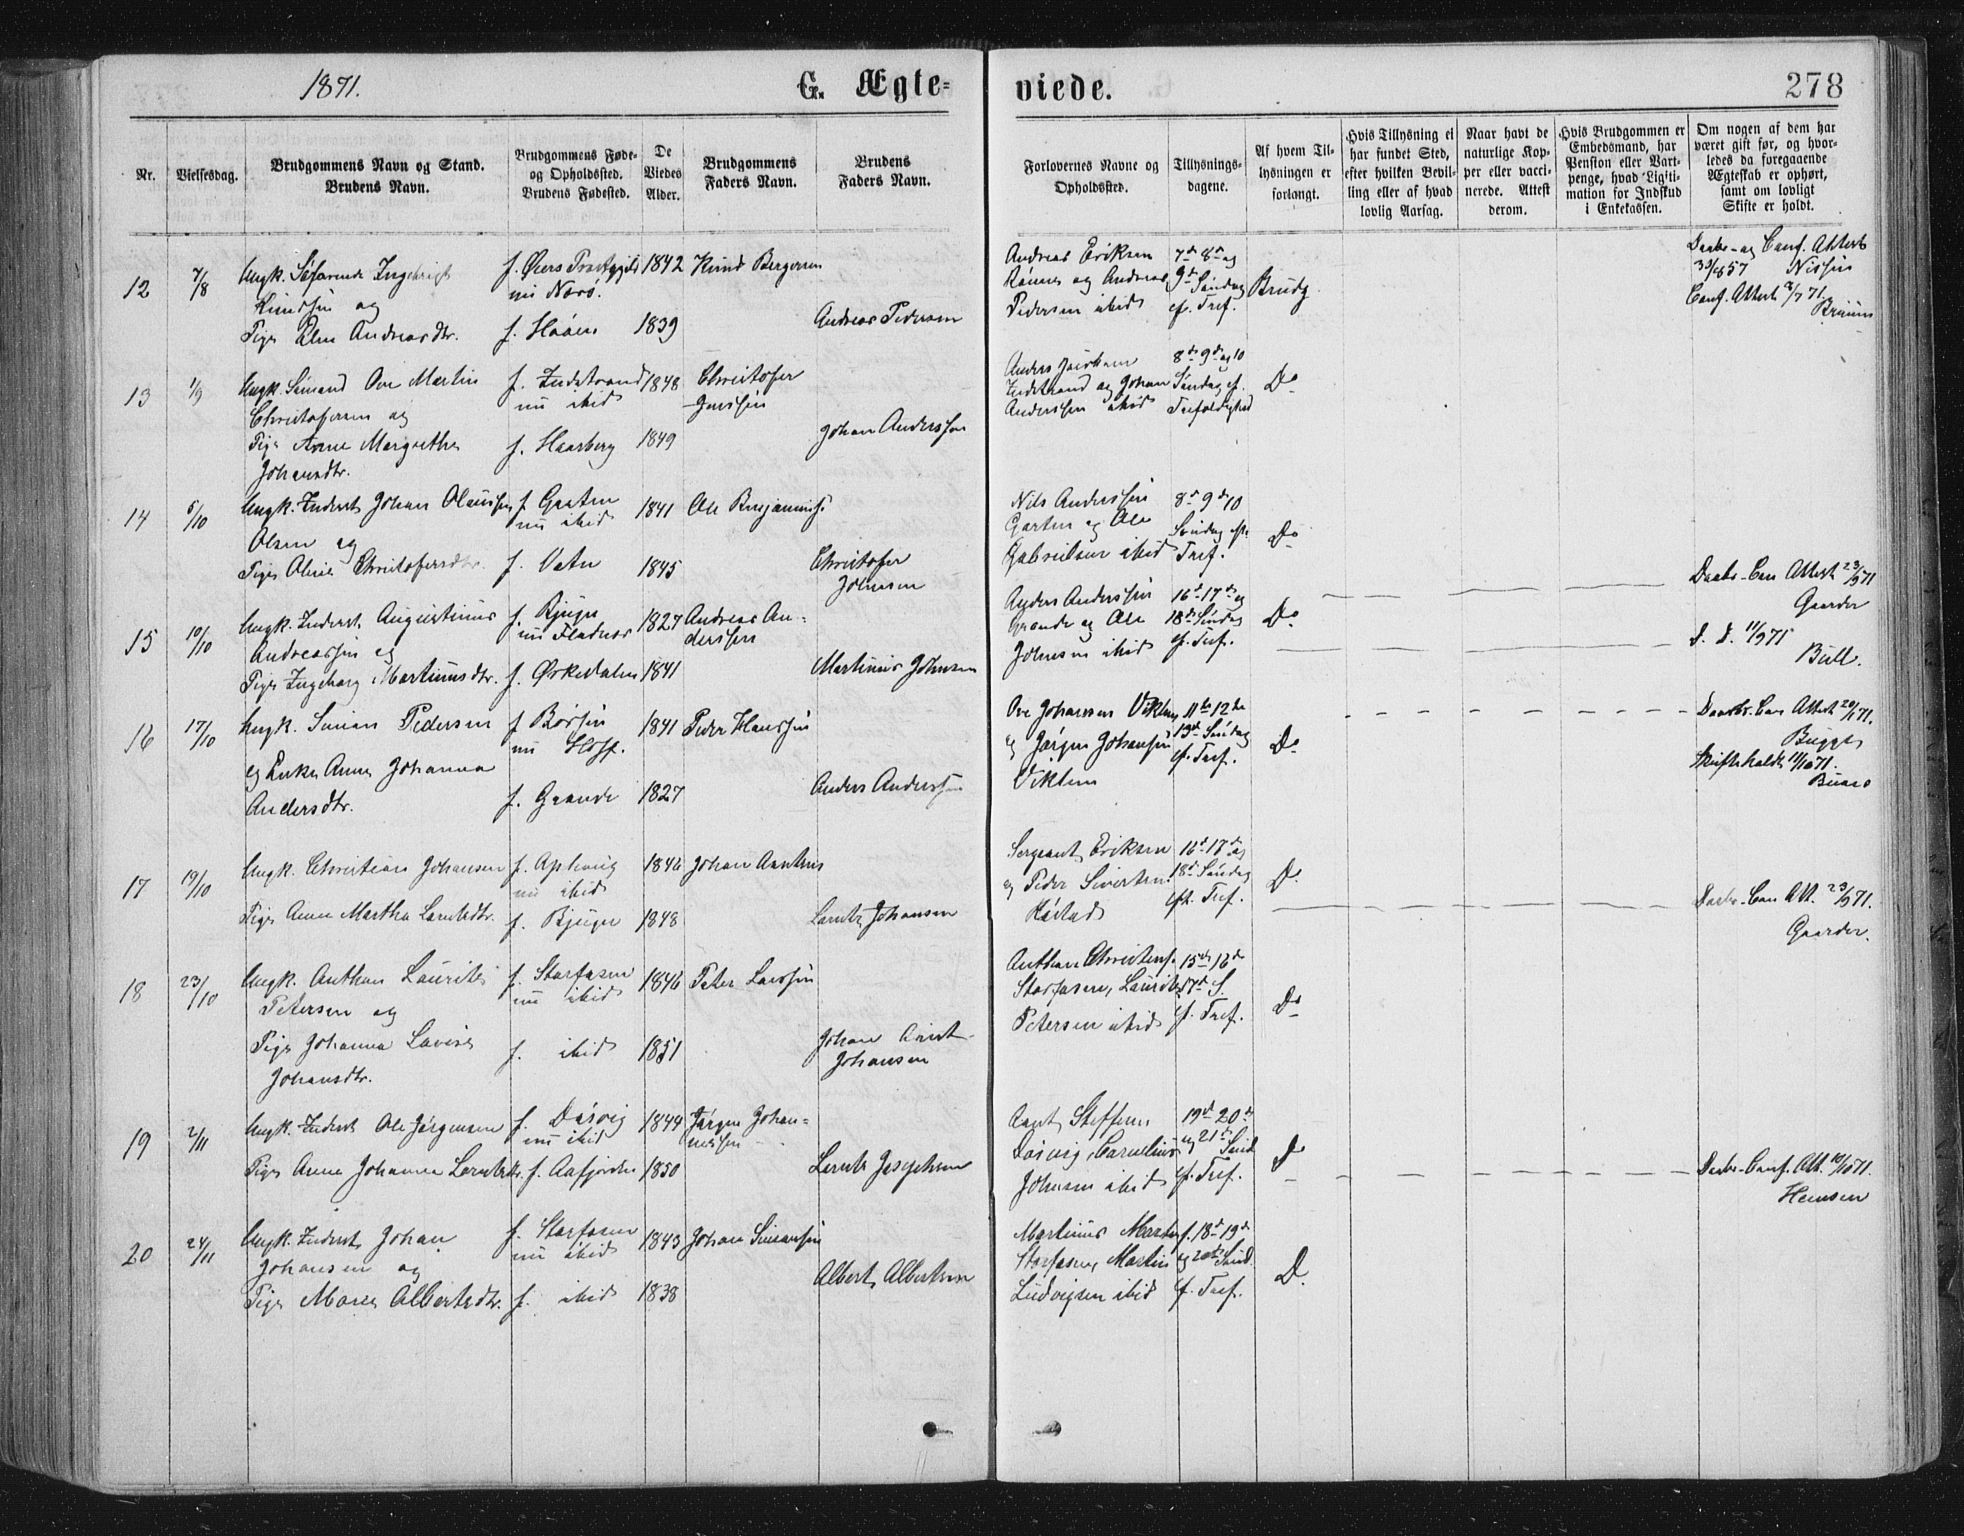 1871.
G. Ægte-
viede.
278
Nr.
Vielsesdag.
Brudgommens Navn og Stand.
Brudens Navn.
Brudgommens Føde-
og Opholdssted.
Brudens Fødested.
De
Viedes
Alder.
Brudgommens
Faders Navn.
Brudens
Faders Navn.
Forlovernes Navne og
Opholdssted.
Tillysnings-
dagene.
Af hvem Til-
lysningen er
forlangt.
Hvis Tillysning ei
har fundet Sted,
efter hvilken Bevil-
ling eller af hvad
lovlig Aarsag.
Naar havt de
naturlige Kop-
per eller vacci-
nerede. Attest
derom.
Hvis Brudgommen er
Embedsmand, har
Pension eller Vart-
penge, hvad Ligiti-
mation for Indskud
i Enkekassen.
Om nogen af dem har
været gift før, og hvor-
ledes da foregaaende
Ægteskab er ophørt,
samt om lovligt
Skifte er holdt.
12 7/8 Ungk. Søfarende Ingebrigt
Knudsen og
Pige Andreasdtr.
f. Øiers Præstegjeld
nu Nærø.
f. Haåen
1842
1839
Knud Bergersen
Andreas Pedersen
Andreas Eriksen
og Andreas
Pedersen ibid
7de 8de og
9de Søndag
ef. Tref.
Brudg
Daabs- og Conf. Attest
Nissen
Conf. Attest 2/7 71
13 1/9 Ungk. Ove Martin
Christofersen og
Pige Anne Margrethe
Johansdtr.
f. Indstrand
nu ibid
f. Haarberg
1848
1849
Christofer
Jenssen
Johan Anderssen
Anders
Indstrand og Johan
Anderssen ibid
8de 9de og 10
Søndag ef.
Trefoldighed
Do
14 5/10 Ungk. Inderst Johan Olaus
Olsen og
Pige Oline Christofersdtr.
f. Garten
nu ibid
f. Vatn
1841
1845
Ole Benjamins.
Christofer
Johnsen
Nils Anderssen
Garten og Ole
Gabrielsen ibid
8de 9de 10
Søndag eft.
Tref.
Do
Daabs-Con Attest 23/9 71
Gaarder
15 10/10 Ungk. Inderst Augustinus
Andreassen og
Pige Ingeborg Martinusdtr.
f. Bjugn
nu Fladnes
f. Ørkedalen
1827
1841
Andreas An-
derssen
Martinus Johnsen
Anders Anderssen
Grande og Ole
Johnsen ibid
16de 17de og
18de Søndag
ef. Tref.
Do
D. D. 11/9 71
Bull.
16 17/10 Ungk. Simon Pedersen
og Enke Anne Johanna
Andersdtr.
f. Børsen
nu Hoff.
f. Grande
1841
1827
Peder Hanssen
Anders Anderssen
Ove Johanssen Viklem
og Jørgen Johansen
Viklem
11te 12te
13de Søndag
ef. Tref.
Do
Daabs-Con Attest 71.
Bugge
Skifteholdt 11/10 71.
17 19/10 Ungk. Christian Johansen
Pige Anne Martha Lorntsdtr.
f. Aphaug
nu ibid
f. Bjugn
1846
1848
Johan
Lornts Johansen
Sergeant Eriksen
og Peder Sivertsen
16de 17de og
18de Søndag
eft. Tref.
Do
Daabs-Con Att. 23/9 71.
Gaarder.
18 23/10 Ungk. Anthon Laurits
Petersen og
Pige Johanna Lovise
Johansdtr.
f. Storfosen
nu ibid
f. ibid
1846
1851
Peter Larssen
Johan
Johansen
Anthon Christens.
Storfosen, Laurits
Petersen ibid
15de 16de
17de S.
ef. Tref.
Do
19 2/11 Ungk. Inderst Ole Jørgensen
Pige Anne Johanna Lorntsdtr.
f. Døsvig
nu ibid
f. Aafjorden
1844
1850
Jørgen Johan-
nessen
Lornts Josephsen
Steffens
Døsvig, Cornelius
Johnsen ibid
19de 20de
og 21de Sønd
ef. Tref.
D
Daabs-Conf. Att. 10/10 71.
Hensen
20 24/11 Ungk. Inderst Johan
Johansen og
Pige Maren Albertsdtr.
f. Storfosen
nu ibid
f. ibid
1843
1838
Johan Simonsen
Albert Albertsen
Martinus
Storfosen, Martin
Ludvigsen ibid
18de 19de
og 20de Sønd.
ef. Tref.
D.